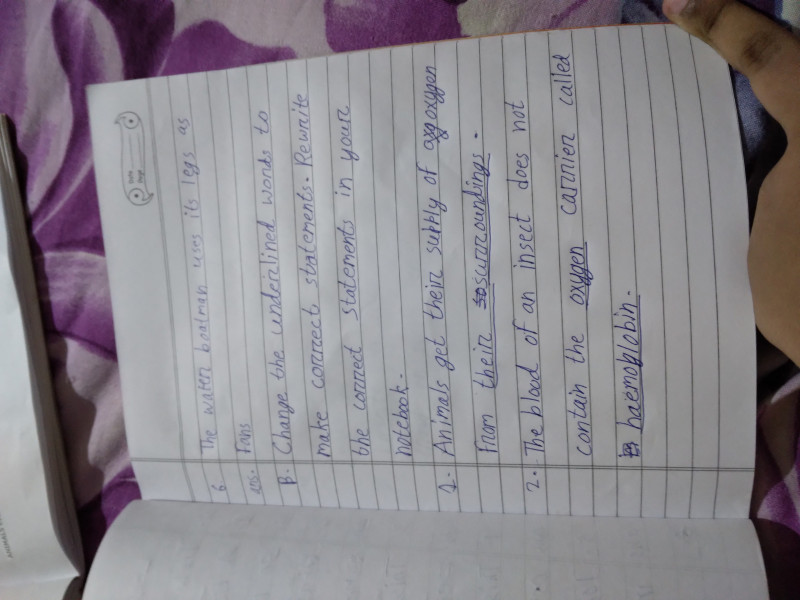 Date
Page
6 The water boatman uses its legs as
ans. Fans
B. Change the underlined words to
make correct statements. Rewrite
the correct statements in your
notebook.
1. Animals get their supply of oxygen
From their surroundings.
2. The blood of an insect does not
contain the oxygen carrier called
haemoplobin.